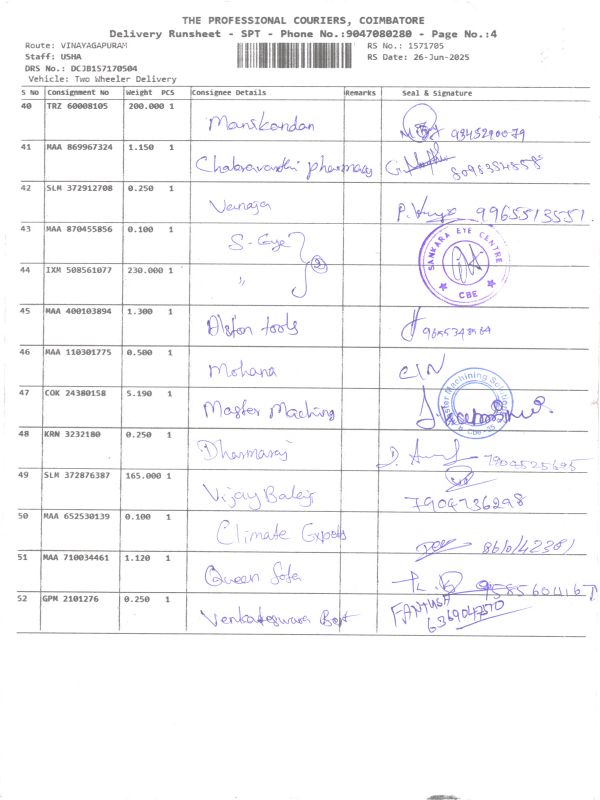 THE PROFESSIONAL COURIERS, COIMBATORE
Delivery Runsheet - SPT - Phone No.:9047080280 - Page No.:4
Route: VINAYAGAPURAM RS No.: 1571705
Staff: USHA RS Date: 26-Jun-2025
DRS No.: DCJB157170504
Vehicle: Two Wheeler Delivery
S No Consignment No Weight PCS Consignee Details Remarks Seal & Signature
40 TRZ 60008105 200.000 1 Manikandan
41 MAA 869967324 1.150 1 Chakravarthi pharmacy
42 SLM 372912708 0.250 1 Vanaja 9965513551
43 MAA 870455856 0.100 1 S-Eye SANKARA EYE CENTRE CBE
44 IXM 508561077 230.000 1 " 2
45 MAA 400103894 1.300 1 Alston tools
46 MAA 110301775 0.500 1 Mohana
47 COK 24380158 5.190 1 Master Maching Master Machining Solutions
48 KRN 3232180 0.250 1 Dharmaraj 7904525695
49 SLM 372876387 165.000 1 Vijay Balaji 7904736298
50 MAA 652530139 0.100 1 Climate Expots
51 MAA 710034461 1.120 1 Queen Sofa
52 GPM 2101276 0.250 1 Venkateswara